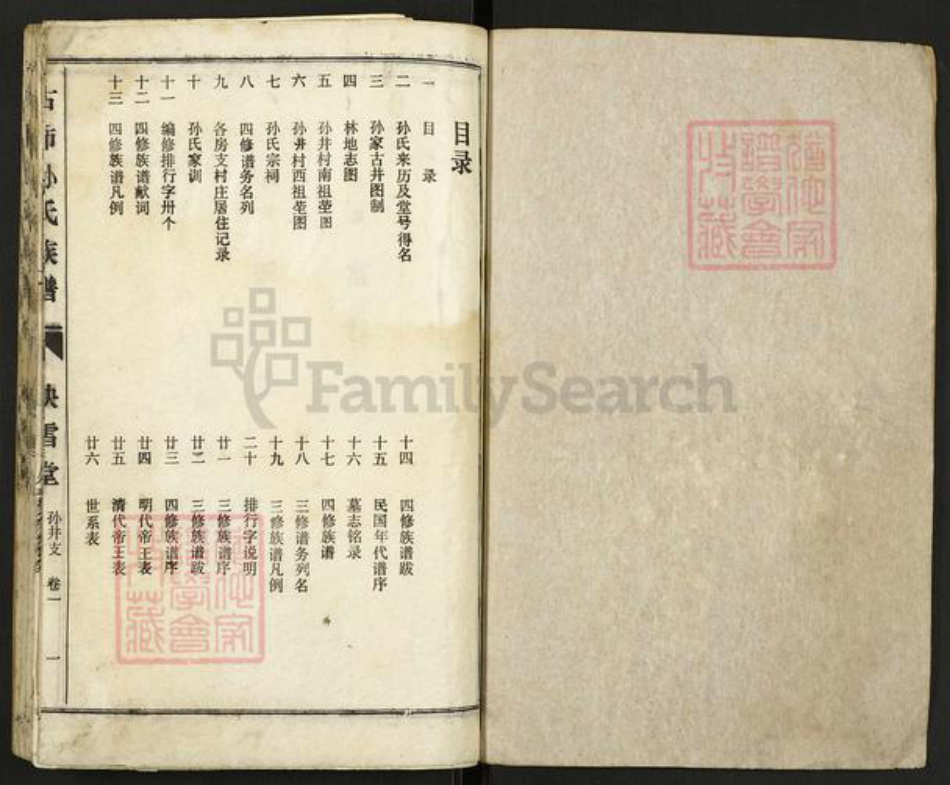 目录
一 目录
二 孙氏来历及堂号得名
三 孙家古井图制
四 林地志图
五 孙井村南祖茔图
六 孙井村西祖茔图
七 孙氏宗祠
八 四修谱务名列
九 各房支村庄居住记录
十 孙氏家训
十一 编修排行字卅个
十二 四修族谱献词
十三 四修族谱凡例
十四 四修族谱跋
十五 民国年代谱序
十六 墓志铭录
十七 四修族谱
十八 三修谱务列名
十九 三修族谱凡例
二十 排行字说明
廿一 三修族谱序
廿二 三修族谱跋
廿三 四修族谱序
廿四 明代帝王表
廿五 清代帝王表
廿六 世系表
孙氏族谱
雪堂
孙井支 卷一
一
FamilySearch